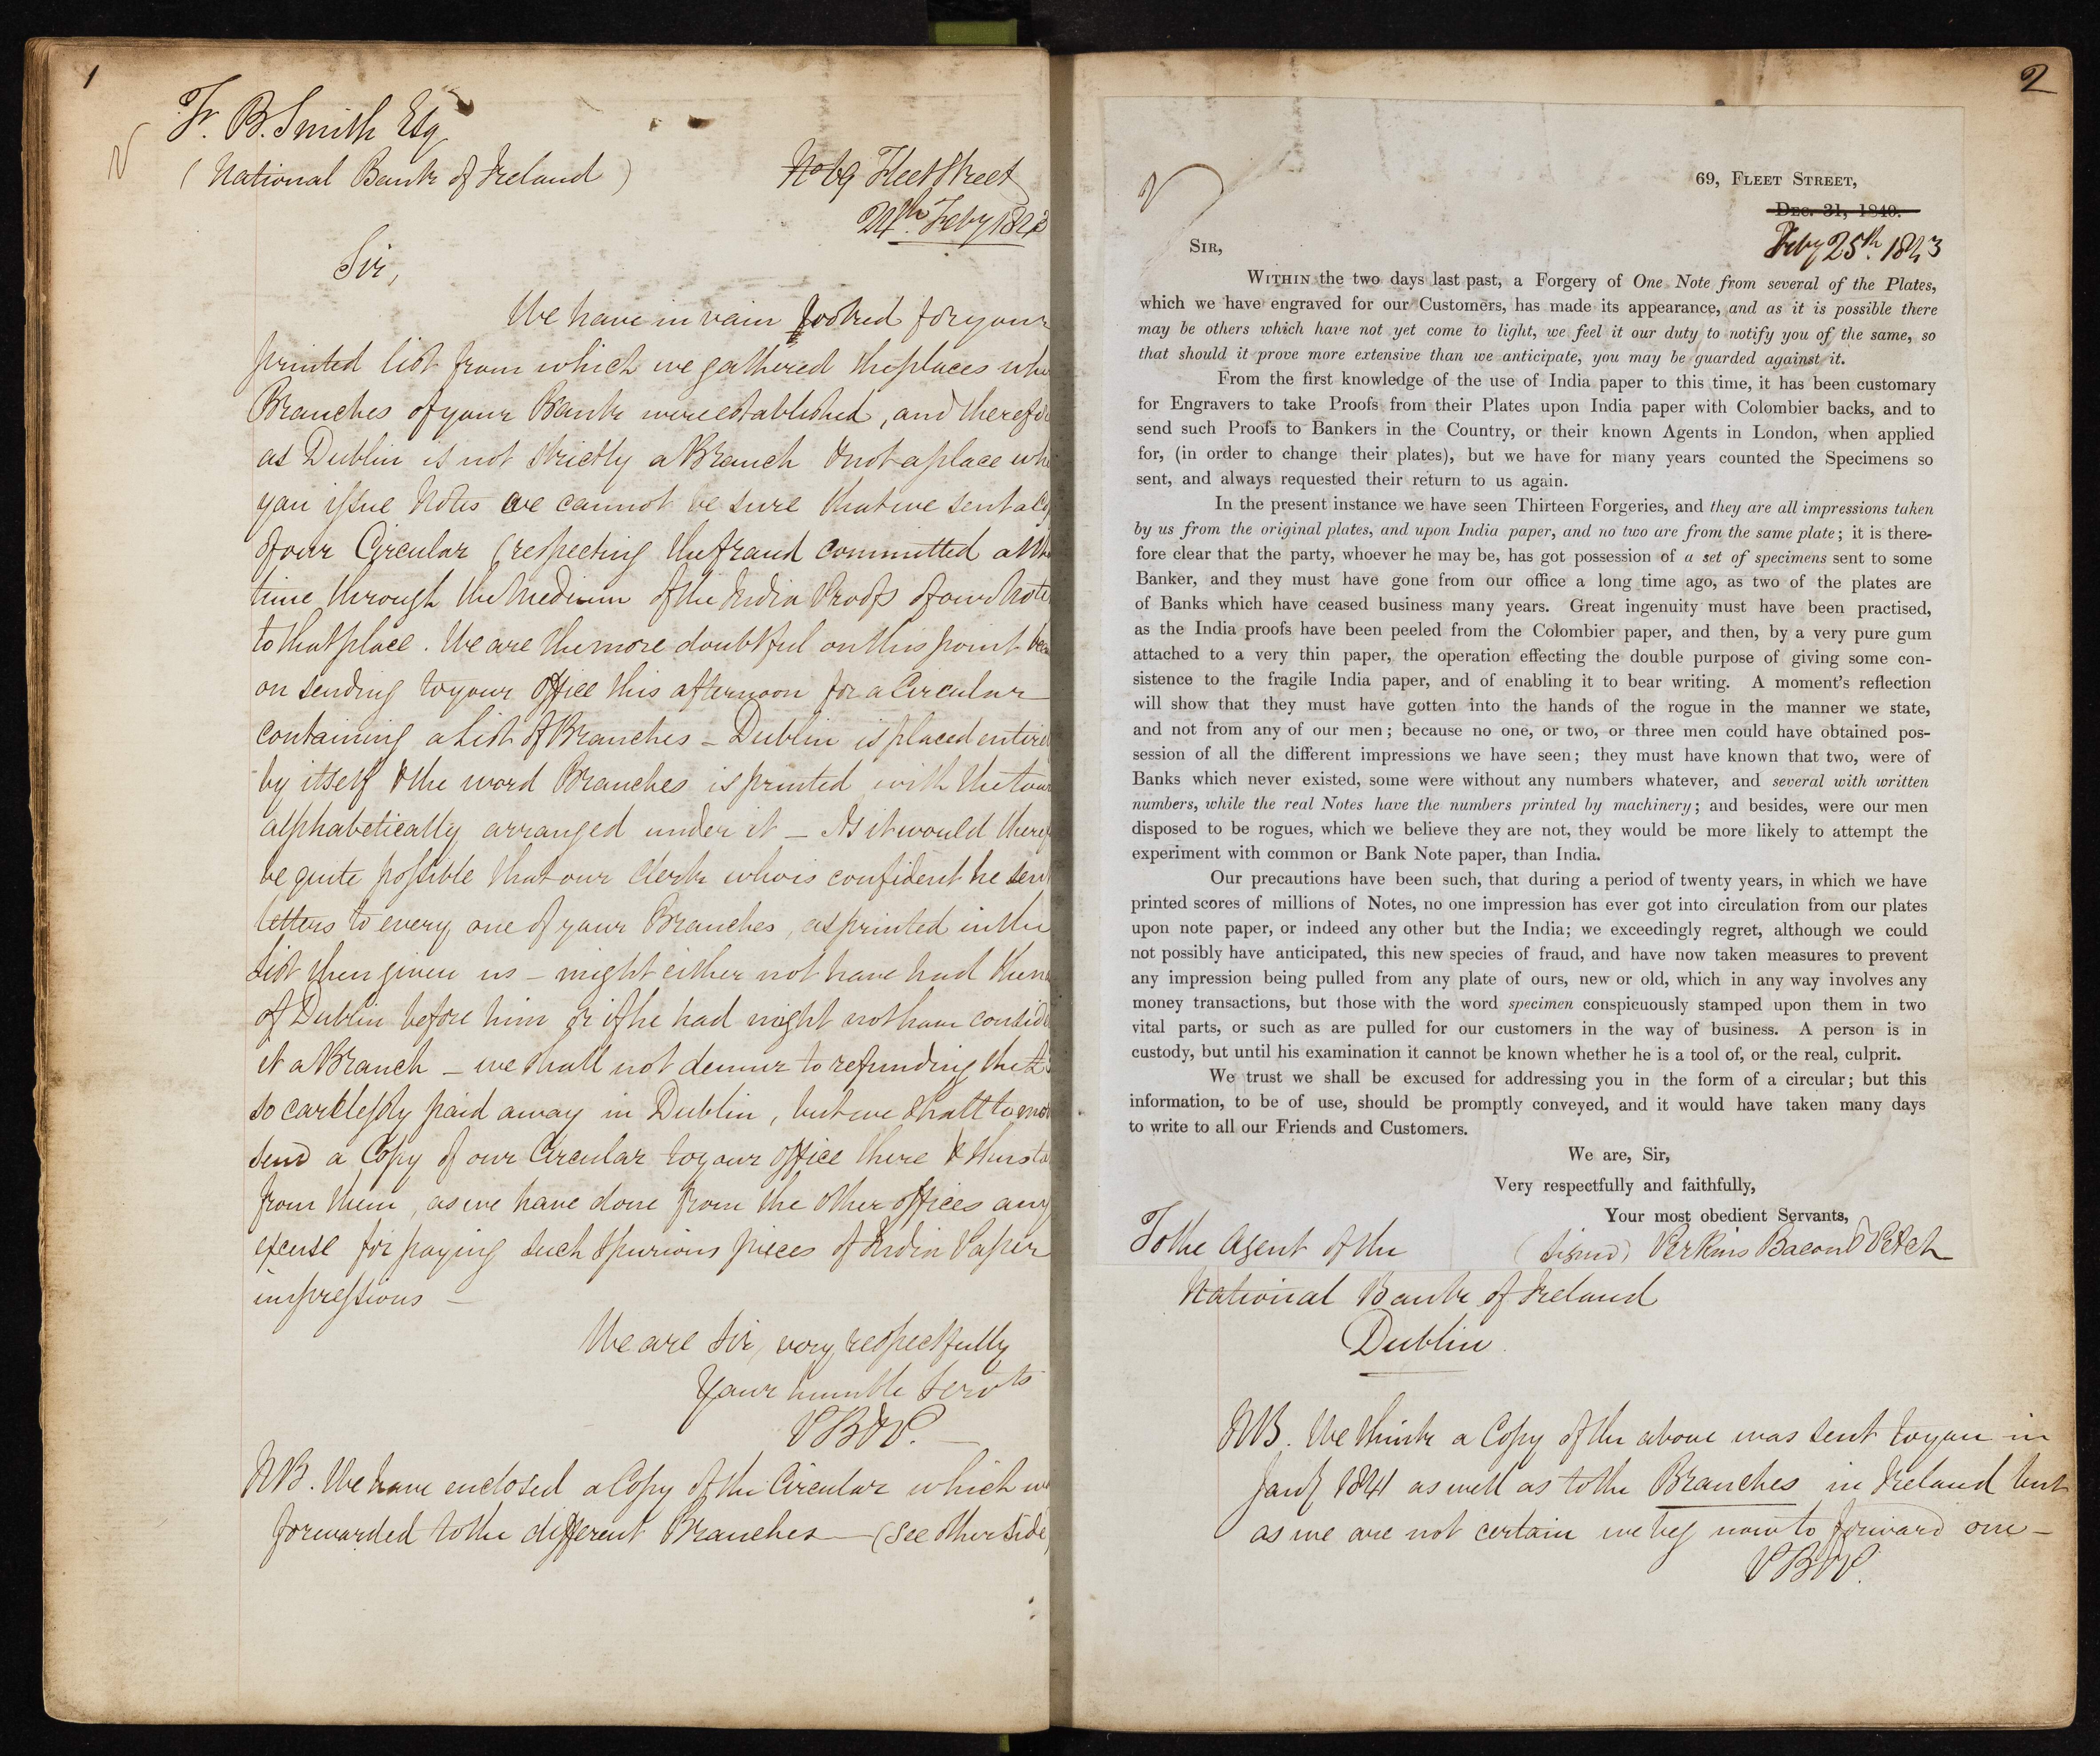 1
Fr. B. Smith Esq
(National Bank of Ireland)
No 69 Fleet Street
24th. Feby 1843
Sir,
We have in vain looked for your
printed list from which we gathered the places
Branches of your Bank were established, and
as Dublin is not strictly a Branch & not a place
you issue Notes we cannot be sure that we sent a
of our Circular (respecting the fraud committed at
time through the medium of the India Proofs of our
to that place. We are the more doubtful on this point
on sending to your office this afternoon for a Circular
containing a List of Branches – Dublin is placed
by itself & the word Branches is printed with the
alphabetically arranged under it – As it would
be quite possible that our Clerk who is confident he
letters to every one of your Branches, as printed in the
List then given us – might either not have had the
of Dublin before him or if he had might not have
it a Branch – we shall not demur to refunding the
so carelessly paid away in Dublin, but we shall
send a Copy of our Circular to your office there & thus
from them, as we have done from the other offices any
excuse for paying such spurious pieces of India Paper
impressions –
We are Sir, very respectfully
Your humble Servts
PB&P.
NB. We have enclosed a Copy of the Circular which
forwarded to the different Branches – (see other side
2
69, Fleet Street,
Dec. 31, 1840.
Feby 25th. 1843
Sir,
Within the two days last past, a Forgery of One Note from several of the Plates,
which we have engraved for our Customers, has made its appearance, and as it is possible there
may be others which have not yet come to light, we feel it our duty to notify you of the same, so
that should it prove more extensive than we anticipate, you may be guarded against it.
From the first knowledge of the use of India paper to this time, it has been customary
for Engravers to take Proofs from their Plates upon India paper with Colombier backs, and to
send such Proofs to Bankers in the Country, or their known Agents in London, when applied
for, (in order to change their plates), but we have for many years counted the Specimens so
sent, and always requested their return to us again.
In the present instance we have seen Thirteen Forgeries, and they are all impressions taken
by us from the original plates, and upon India paper, and no two are from the same plate; it is there-
fore clear that the party, whoever he may be, has got possession of a set of specimens sent to some
Banker, and they must have gone from our office a long time ago, as two of the plates are
of Banks which have ceased business many years. Great ingenuity must have been practised,
as the India proofs have been peeled from the Colombier paper, and then, by a very pure gum
attached to a very thin paper, the operation effecting the double purpose of giving some con-
sistence to the fragile India paper, and of enabling it to bear writing. A moment's reflection
will show that they must have gotten into the hands of the rogue in the manner we state,
and not from any of our men; because no one, or two, or three men could have obtained pos-
session of all the different impressions we have seen; they must have known that two, were of
Banks which never existed, some were without any numbers whatever, and several with written
numbers, while the real Notes have the numbers printed by machinery; and besides, were our men
disposed to be rogues, which we believe they are not, they would be more likely to attempt the
experiment with common or Bank Note paper, than India.
Our precautions have been such, that during a period of twenty years, in which we have
printed scores of millions of Notes, no one impression has ever got into circulation from our plates
upon note paper, or indeed any other but the India; we exceedingly regret, although we could
not possibly have anticipated, this new species of fraud, and have now taken measures to prevent
any impression being pulled from any plate of ours, new or old, which in any way involves any
money transactions, but those with the word specimen conspicuously stamped upon them in two
vital parts, or such as are pulled for our customers in the way of business. A person is in
custody, but until his examination it cannot be known whether he is a tool of, or the real, culprit.
We trust we shall be excused for addressing you in the form of a circular; but this
information, to be of use, should be promptly conveyed, and it would have taken many days
to write to all our Friends and Customers.
We are, Sir,
Very respectfully and faithfully,
Your most obedient Servants,
To the Agent of the (signed) Perkins Bacon & Petch
National Bank of Ireland
Dublin
NB. We think a Copy of the above was sent to you in
Jany 1841 as well as to the Branches in Ireland but
as we are not certain we beg now to forward one –
PB&P.